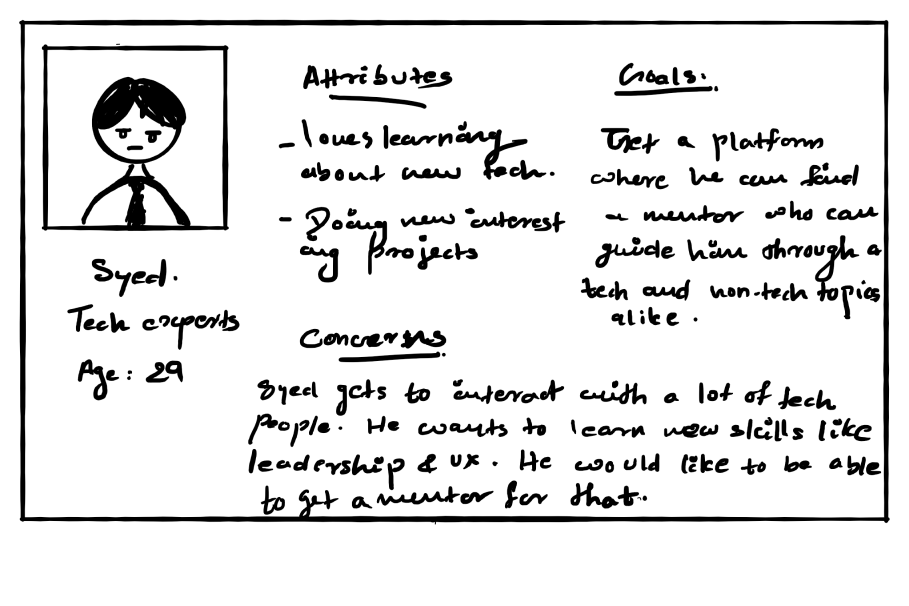 Syed.
Tech experts
Age: 29
Attributes
- loves learning
about new tech.
- Doing new interest
ing projects
Goals.
Get a platform
where he can find
a mentor who can
guide him through a
tech and non-tech topics
alike.
Concerns
Syed gets to interact with a lot of tech
people. He wants to learn new skills like
leadership & UX. He would like to be able
to get a mentor for that.